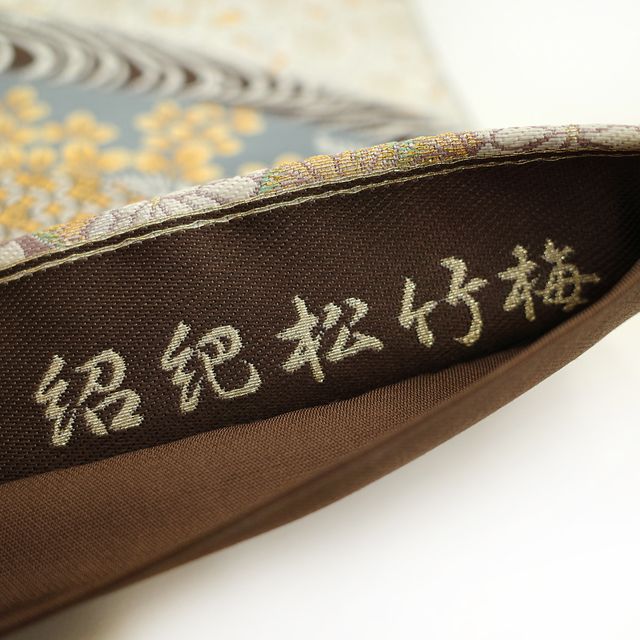 紹紀松竹梅